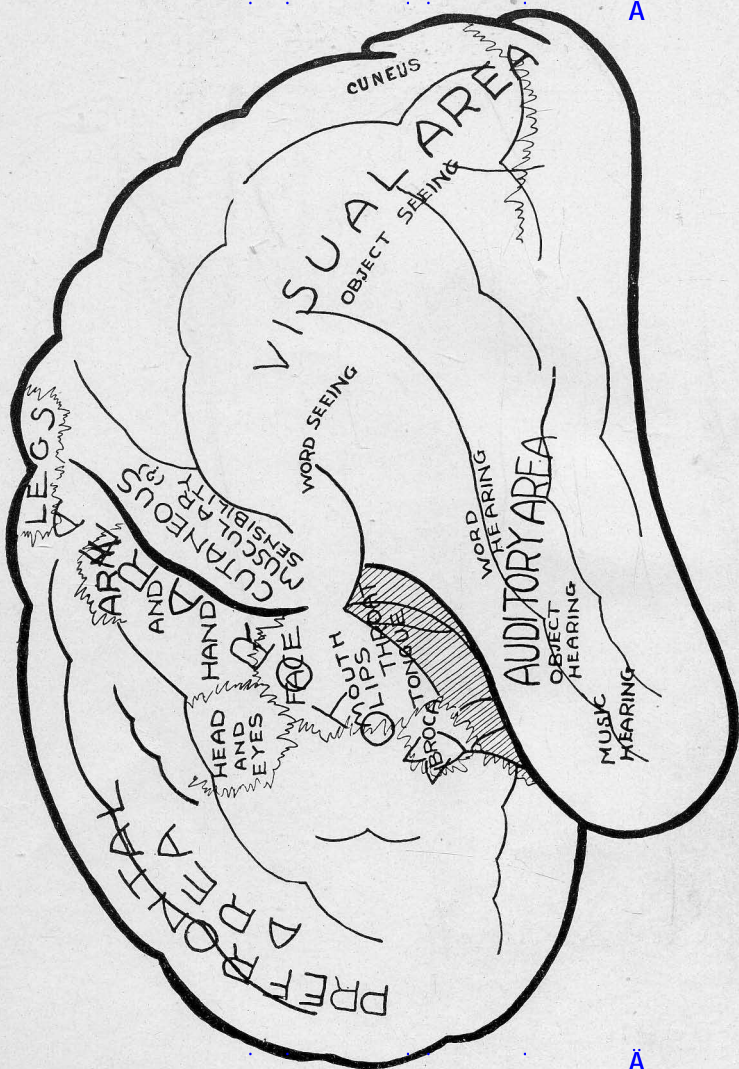 A
CUNEUS
VISUAL AREA
OBJECT SEEING
WORD SEEING
LEGS
CUTANEOUS
MUSCULAR (?)
SENSIBILITY
ARM
AND
HAND
FACE
HEAD
AND
EYES
MOUTH
LIPS
THROAT
TONGUE
BROCA
WORD
HEARING
AUDITORY AREA
OBJECT
HEARING
MUSIC
HEARING
PREFRONTAL
AREA
Ä